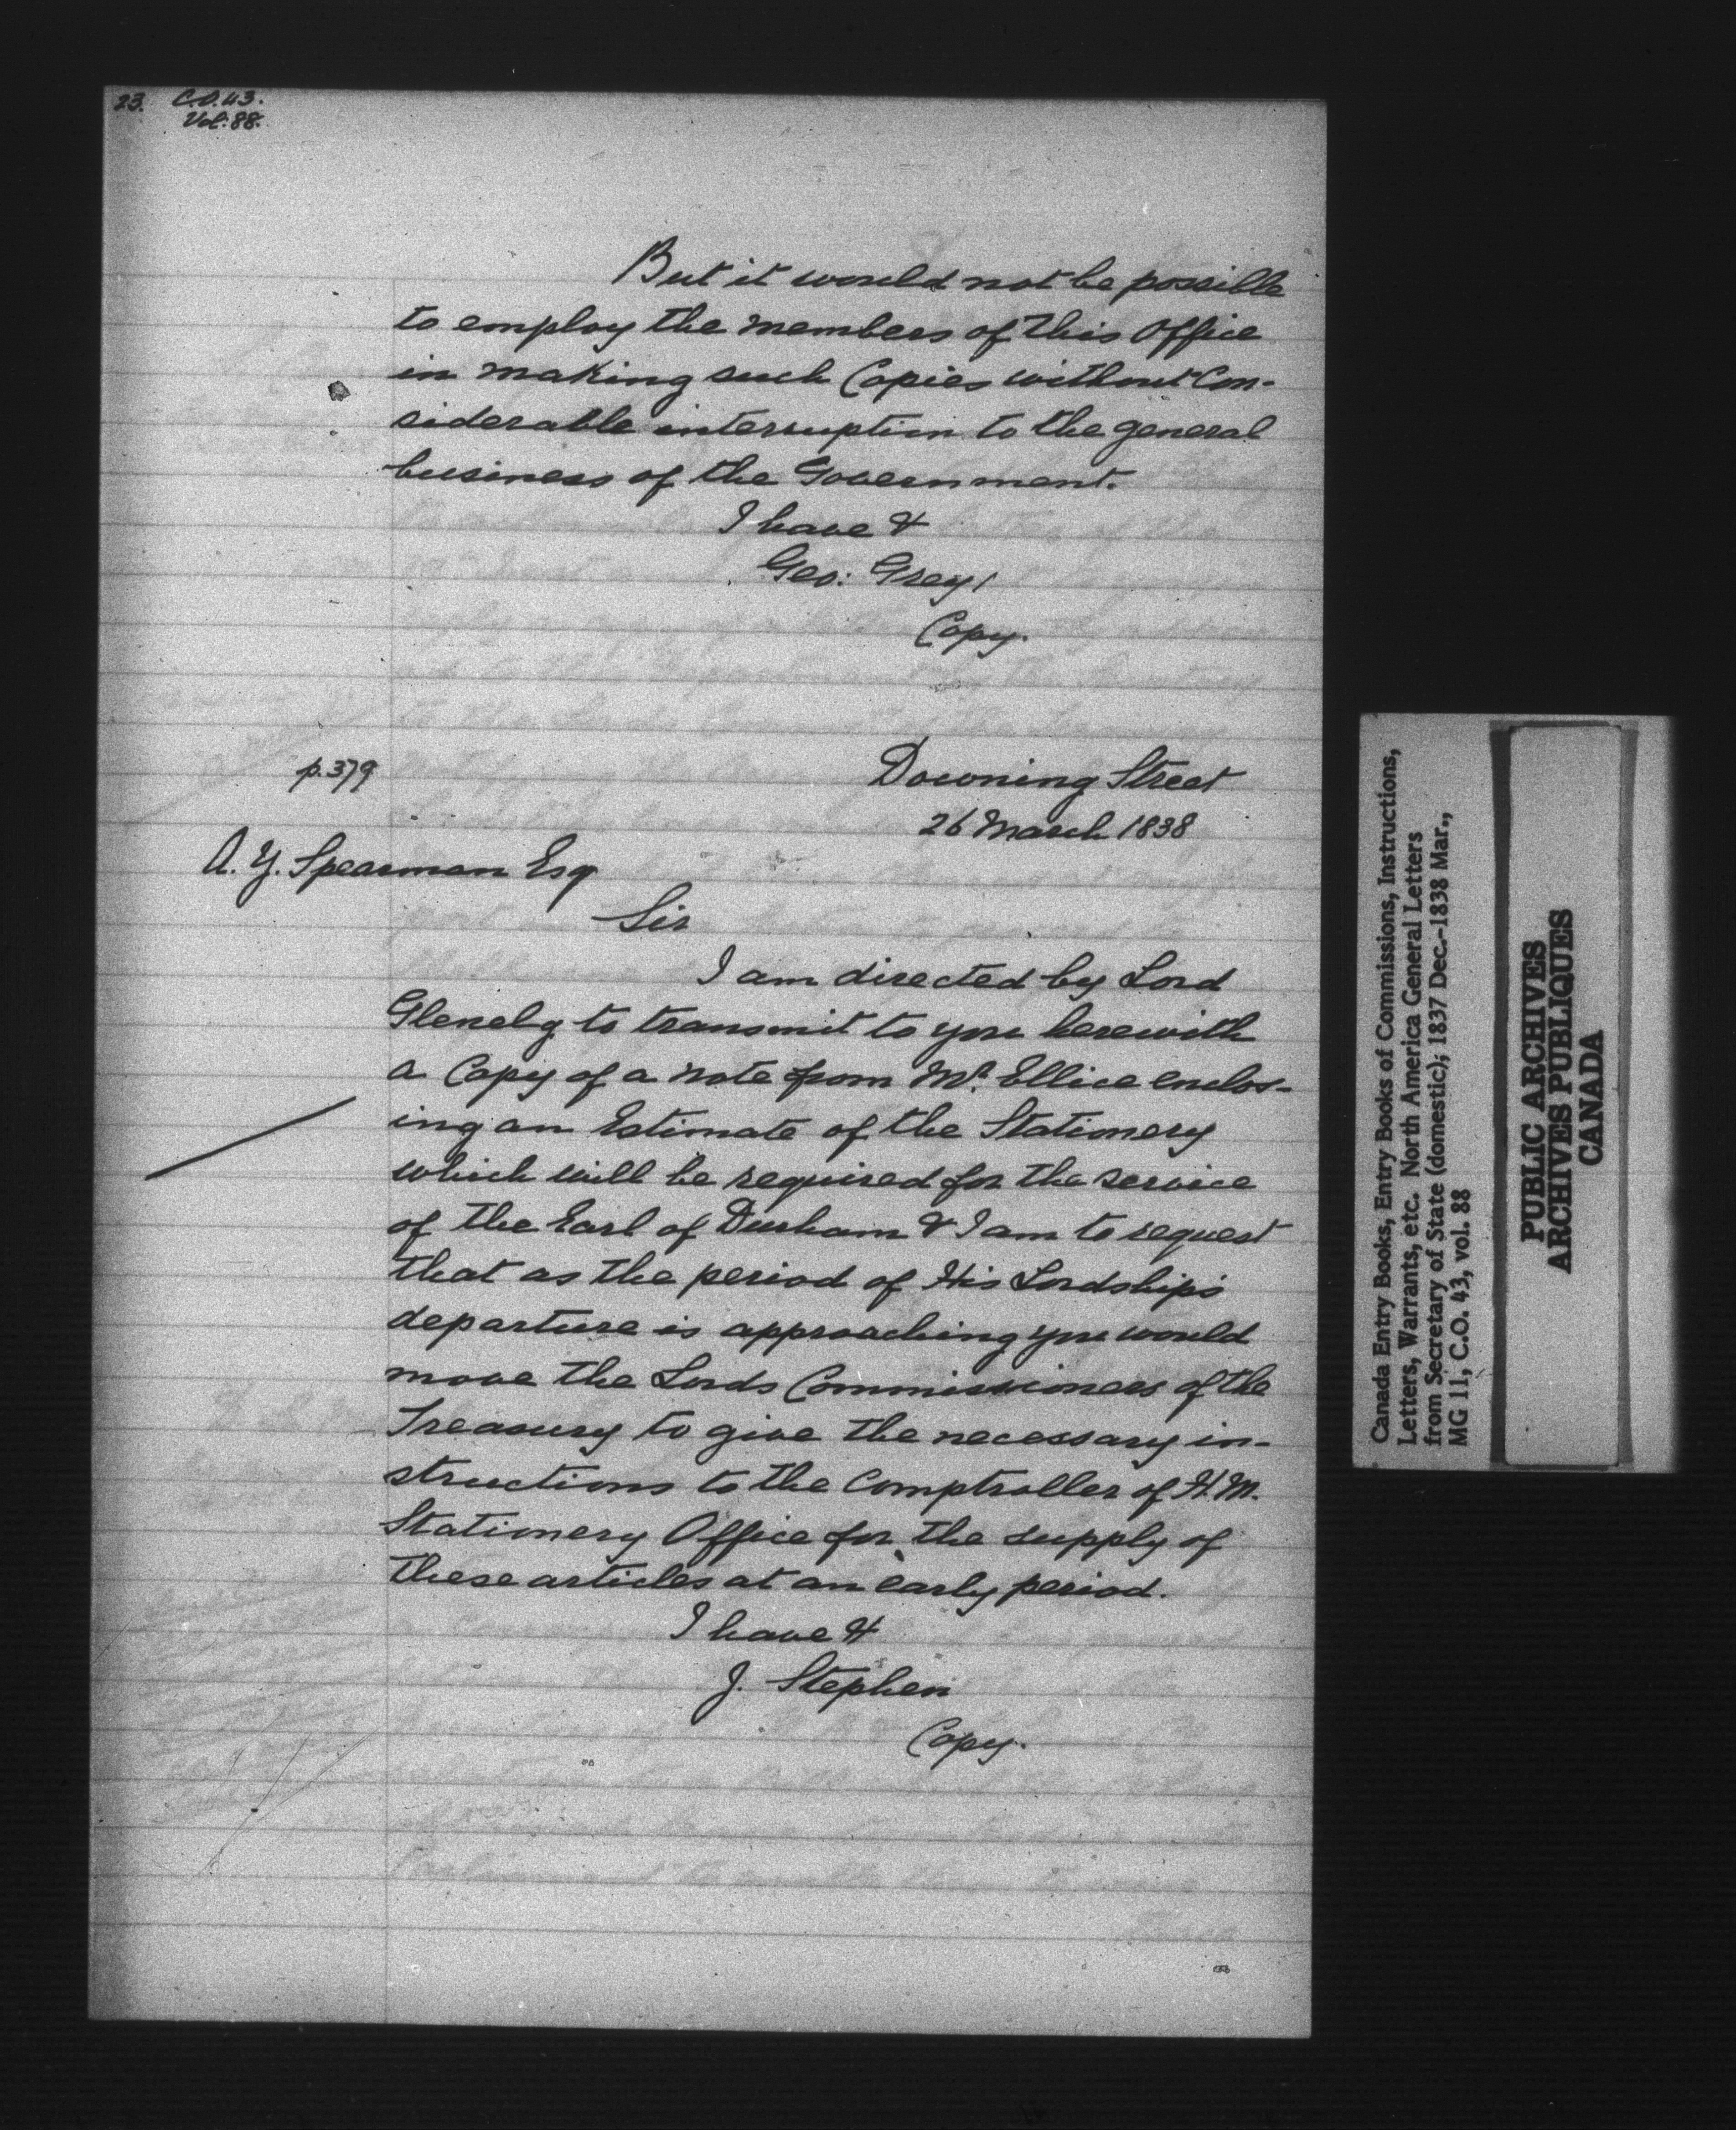 23. C.O. 43.
Vol: 88.
But it would not be possible
to employ the members of this Office
in making such Copies without Con-
siderable interruption to the general
business of the Government.
I have &
Geo: Grey
Copy.
p. 379
Downing Street
26 March 1838
A. Y. Spearman Esq
Sir
I am directed by Lord
Glenelg to transmit to you herewith
a Copy of a note from Mr. Ellice enclos-
ing an Estimate of the Stationery
which will be required for the service
of the Earl of Durham & I am to request
that as the period of His Lordship's
departure is approaching you would
move the Lords Commissioners of the
Treasury to give the necessary in-
structions to the Comptroller of H.M.
Stationery Office for the supply of
these articles at an early period.
I have &
J. Stephen
Copy.
Canada Entry Books, Entry Books of Commissions, Instructions,
Letters, Warrants, etc. North America General Letters
from Secretary of State (domestic); 1837 Dec.-1838 Mar.,
MG 11, C.O. 43, vol. 88
PUBLIC ARCHIVES
ARCHIVES PUBLIQUES
CANADA